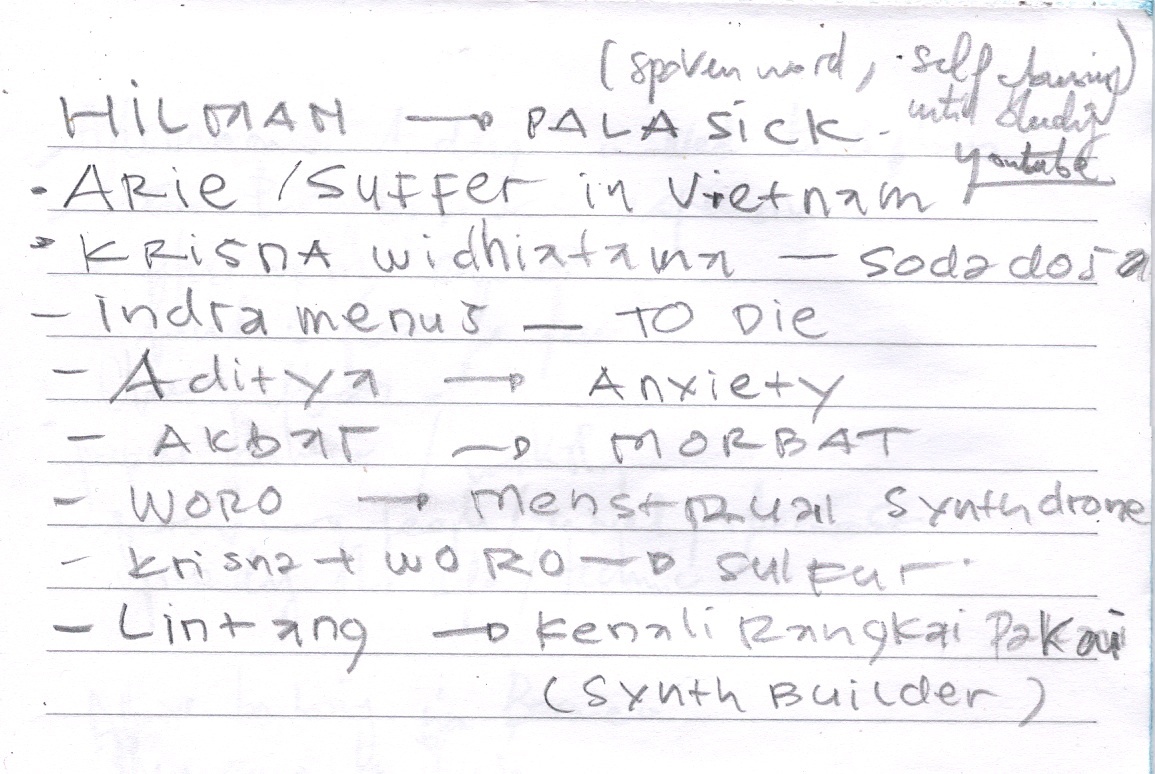 (spoken word, self
HiLMAN → PALA SiCK - until study
youtube
• ARie / SuFFer in Vietnam
• KRiSNA widhiatama — sodadosa
- indra menus — TO Die
- Aditya → Anxiety
- AKbar → MORBAT
- WORO → Menstrual synth drone
- krisna + WORO → sulfur
- Lintang → Kenali Rangkai Pakai
(Synth Builder)